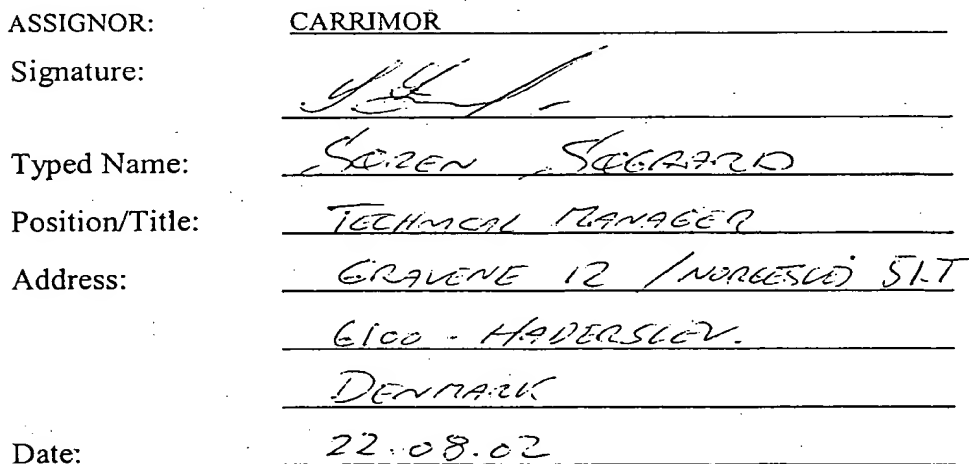 ASSIGNOR: CARRIMOR
Signature:
Typed Name: SØREN SØGAARD
Position/Title: TECHNICAL MANAGER
Address: GRAVENE 12 / NORGESVEJ 51.T
6100 - HADERSLEV.
DENMARK
Date: 22.08.02